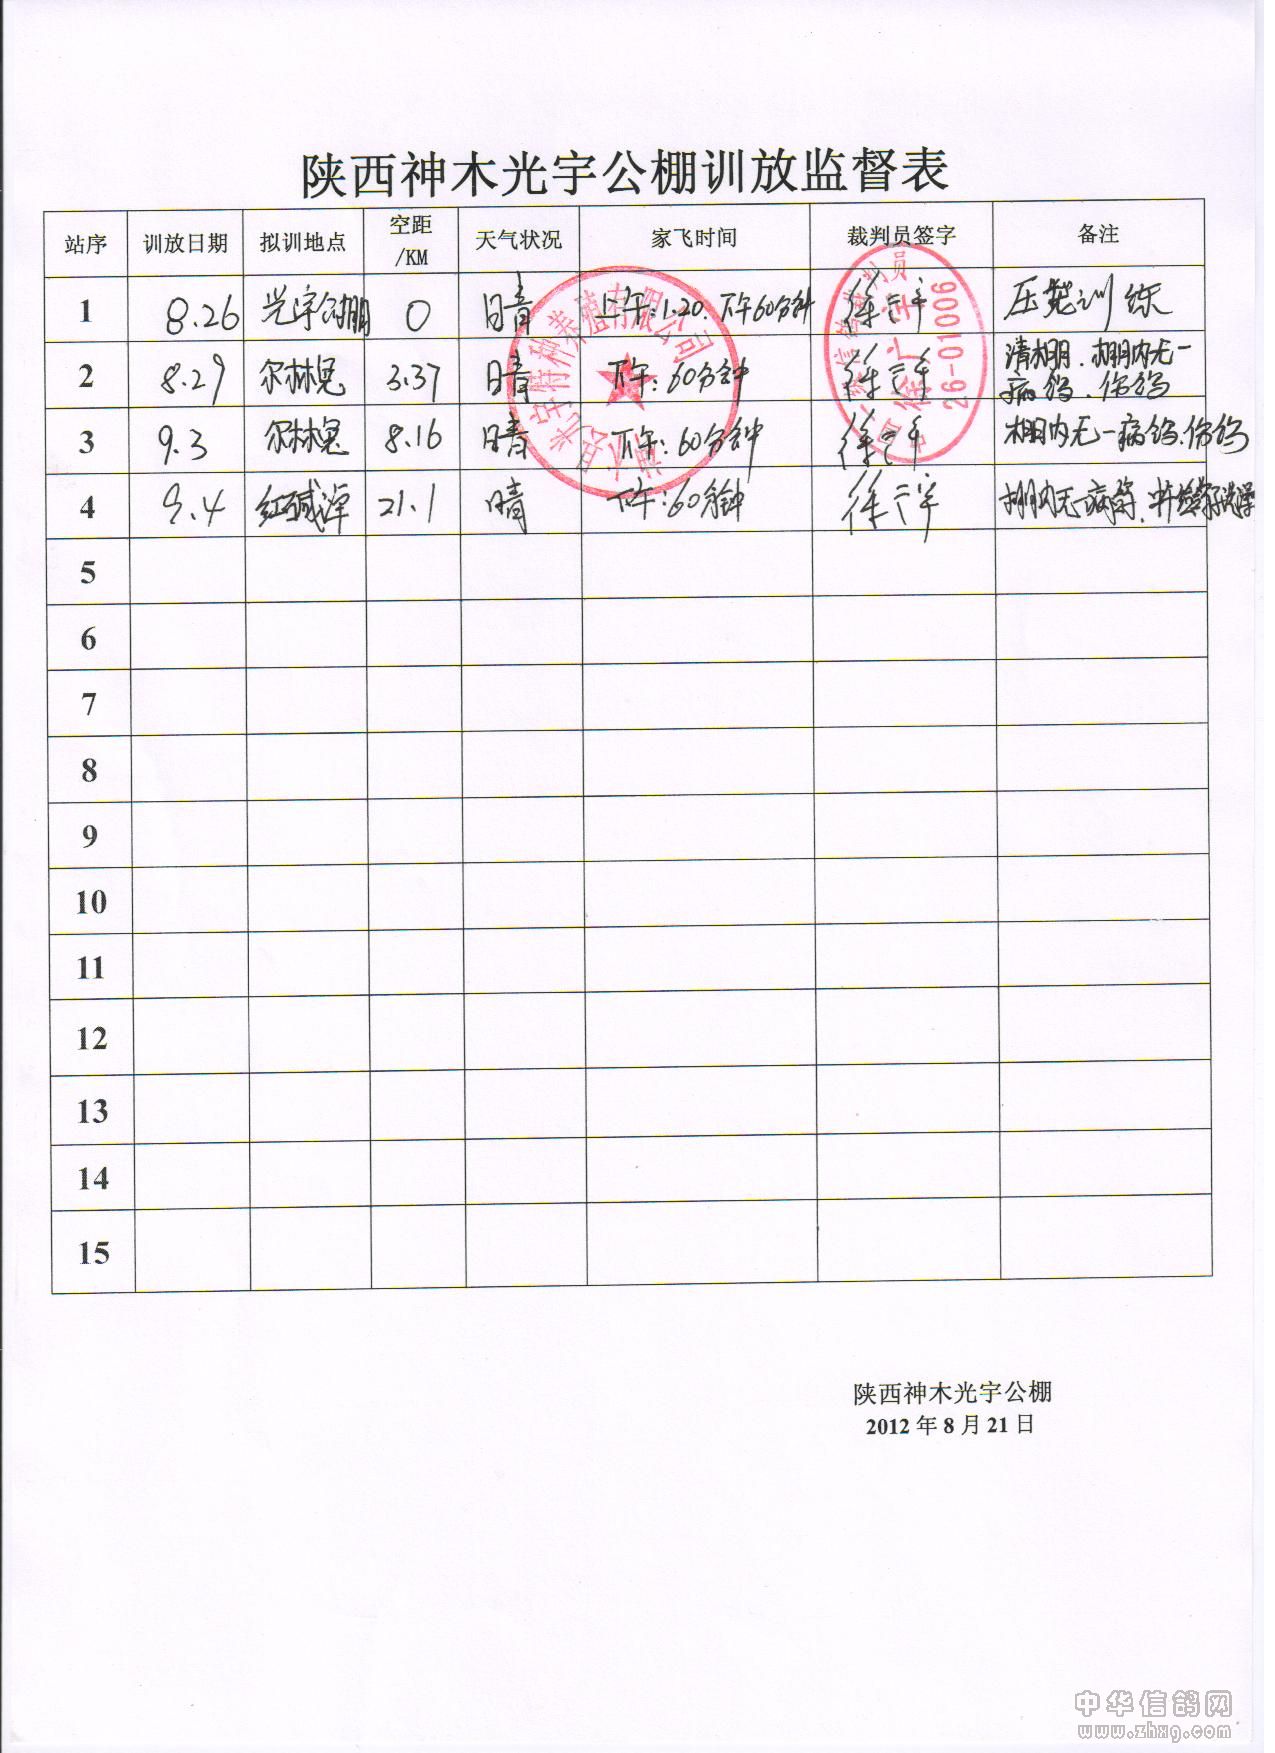 陕西神木光宇公棚训放监督表
站序 训放日期 拟训地点 空距/KM 天气状况 家飞时间 裁判员签字 备注
1 8.26 光宇公棚 0 晴 上午:1.20.下午60分钟 压笼训练
2 8.29 尔林兔 3.37 晴 下午:60分钟 清棚.棚内无一病鸽.伤鸽
3 9.3 尔林兔 8.16 晴 下午:60分钟 棚内无一病鸽.伤鸽
4 9.4 红碱淖 21.1 晴 下午:60分钟 棚内无病鸽.
5
6
7
8
9
10
11
12
13
14
15
神木县光宇特种养殖有限公司
中国信鸽裁判员
26-01006
陕西神木光宇公棚
2012年8月21日
中华信鸽网
www.zhxg.com